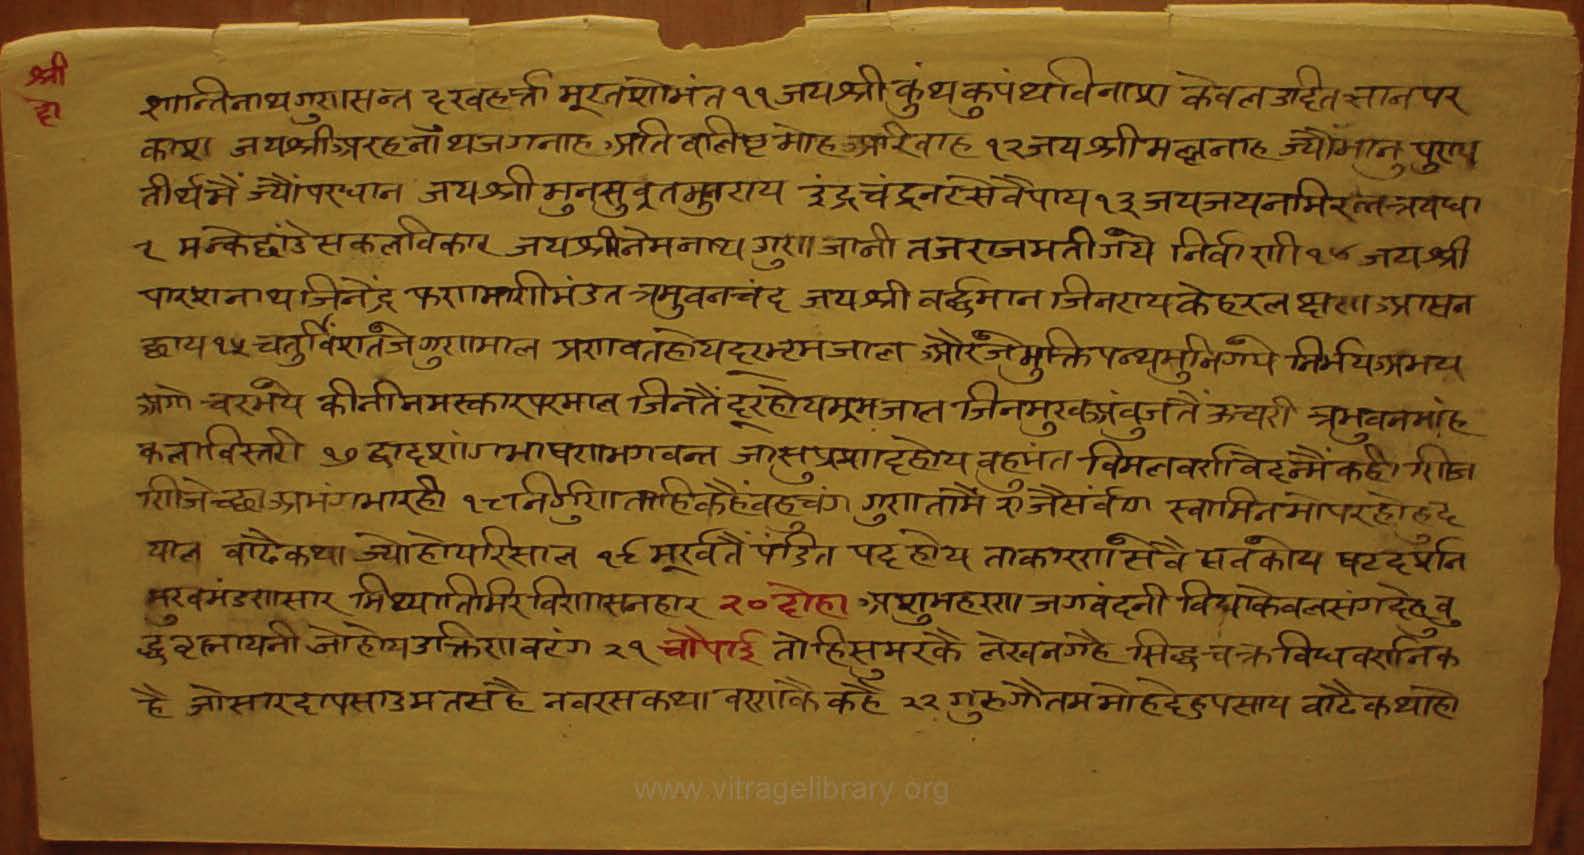 श्री
हो
शान्तिनाथ गुण सन्त दरव हर्त्ता मूरत शोमंत ११ जय श्री कुंथ कुपंथ विनाश केवल उदित ज्ञान पर
काश जय श्री अरहनाथ जगनाह अति वलिष्ट मोह अरि वाह १२ जय श्री मल्लनाह ज्यौं मानु पुराण
तीर्थ मैं ज्यौं परधान जय श्री मुनसुव्रत मुनराय इंद्र चंद्र नर सेवै पाय १३ जय जय नामि रत्नत्रयधा
र मनके छांडे सकल विकार जय श्री नेमनाथ गुण जानी तज राजमती गये निर्वाणी १४ जय श्री
पारशनाथ जिनेंद्र फणमणि मंडत त्रमुवन चंद जय श्री वर्द्धमान जिनराय केहर लक्षण आसन
छाय १५ चतुर्विंशत जे गुणमाल प्रणवत होय दूर म्रम जाल और जे मुक्ति पन्थ मुनि गये निर्मय अमय
अगोचर मये कीनी नमस्कार परमाल जिनतैं दूर होय म्रम जाल जिन मुख अंवुज तैं ऊचरी त्रमुवन मांह
कला विस्तरी १७ द्वादशांग माषण मगवन्त जास प्रशाद होय वहुमंत विमल वर्ण विदन्मैं कही
अमंग मारही १८ निर्गुण ताहि कहैं वहु चंग गुण तामै स्वामिन मो पर होहु द
याल वाढै कथा ज्यो होय रिसाल १९ मूर्ख तैं पंडित पद होय ता कारण सेवै सव कोय षट दर्शन
मुख मंडण सार मिथ्या तिमिर विणासनहार २० दोहा अशुम हरण जगवंदनी विद्या केवल संग देहु वु
द्ध जो होय उक्ति ण व रंग २१ चौपाई तोहि सुमर कै लेखन गहै सिद्ध चक्र विध वर्णन क
है जो सारदा पसाउ मत लहै नवरस कथा वरण कै कहै २२ गुरु गौतम मोह देहु पसाय वाढै कथा हो
www.vitragelibrary.org